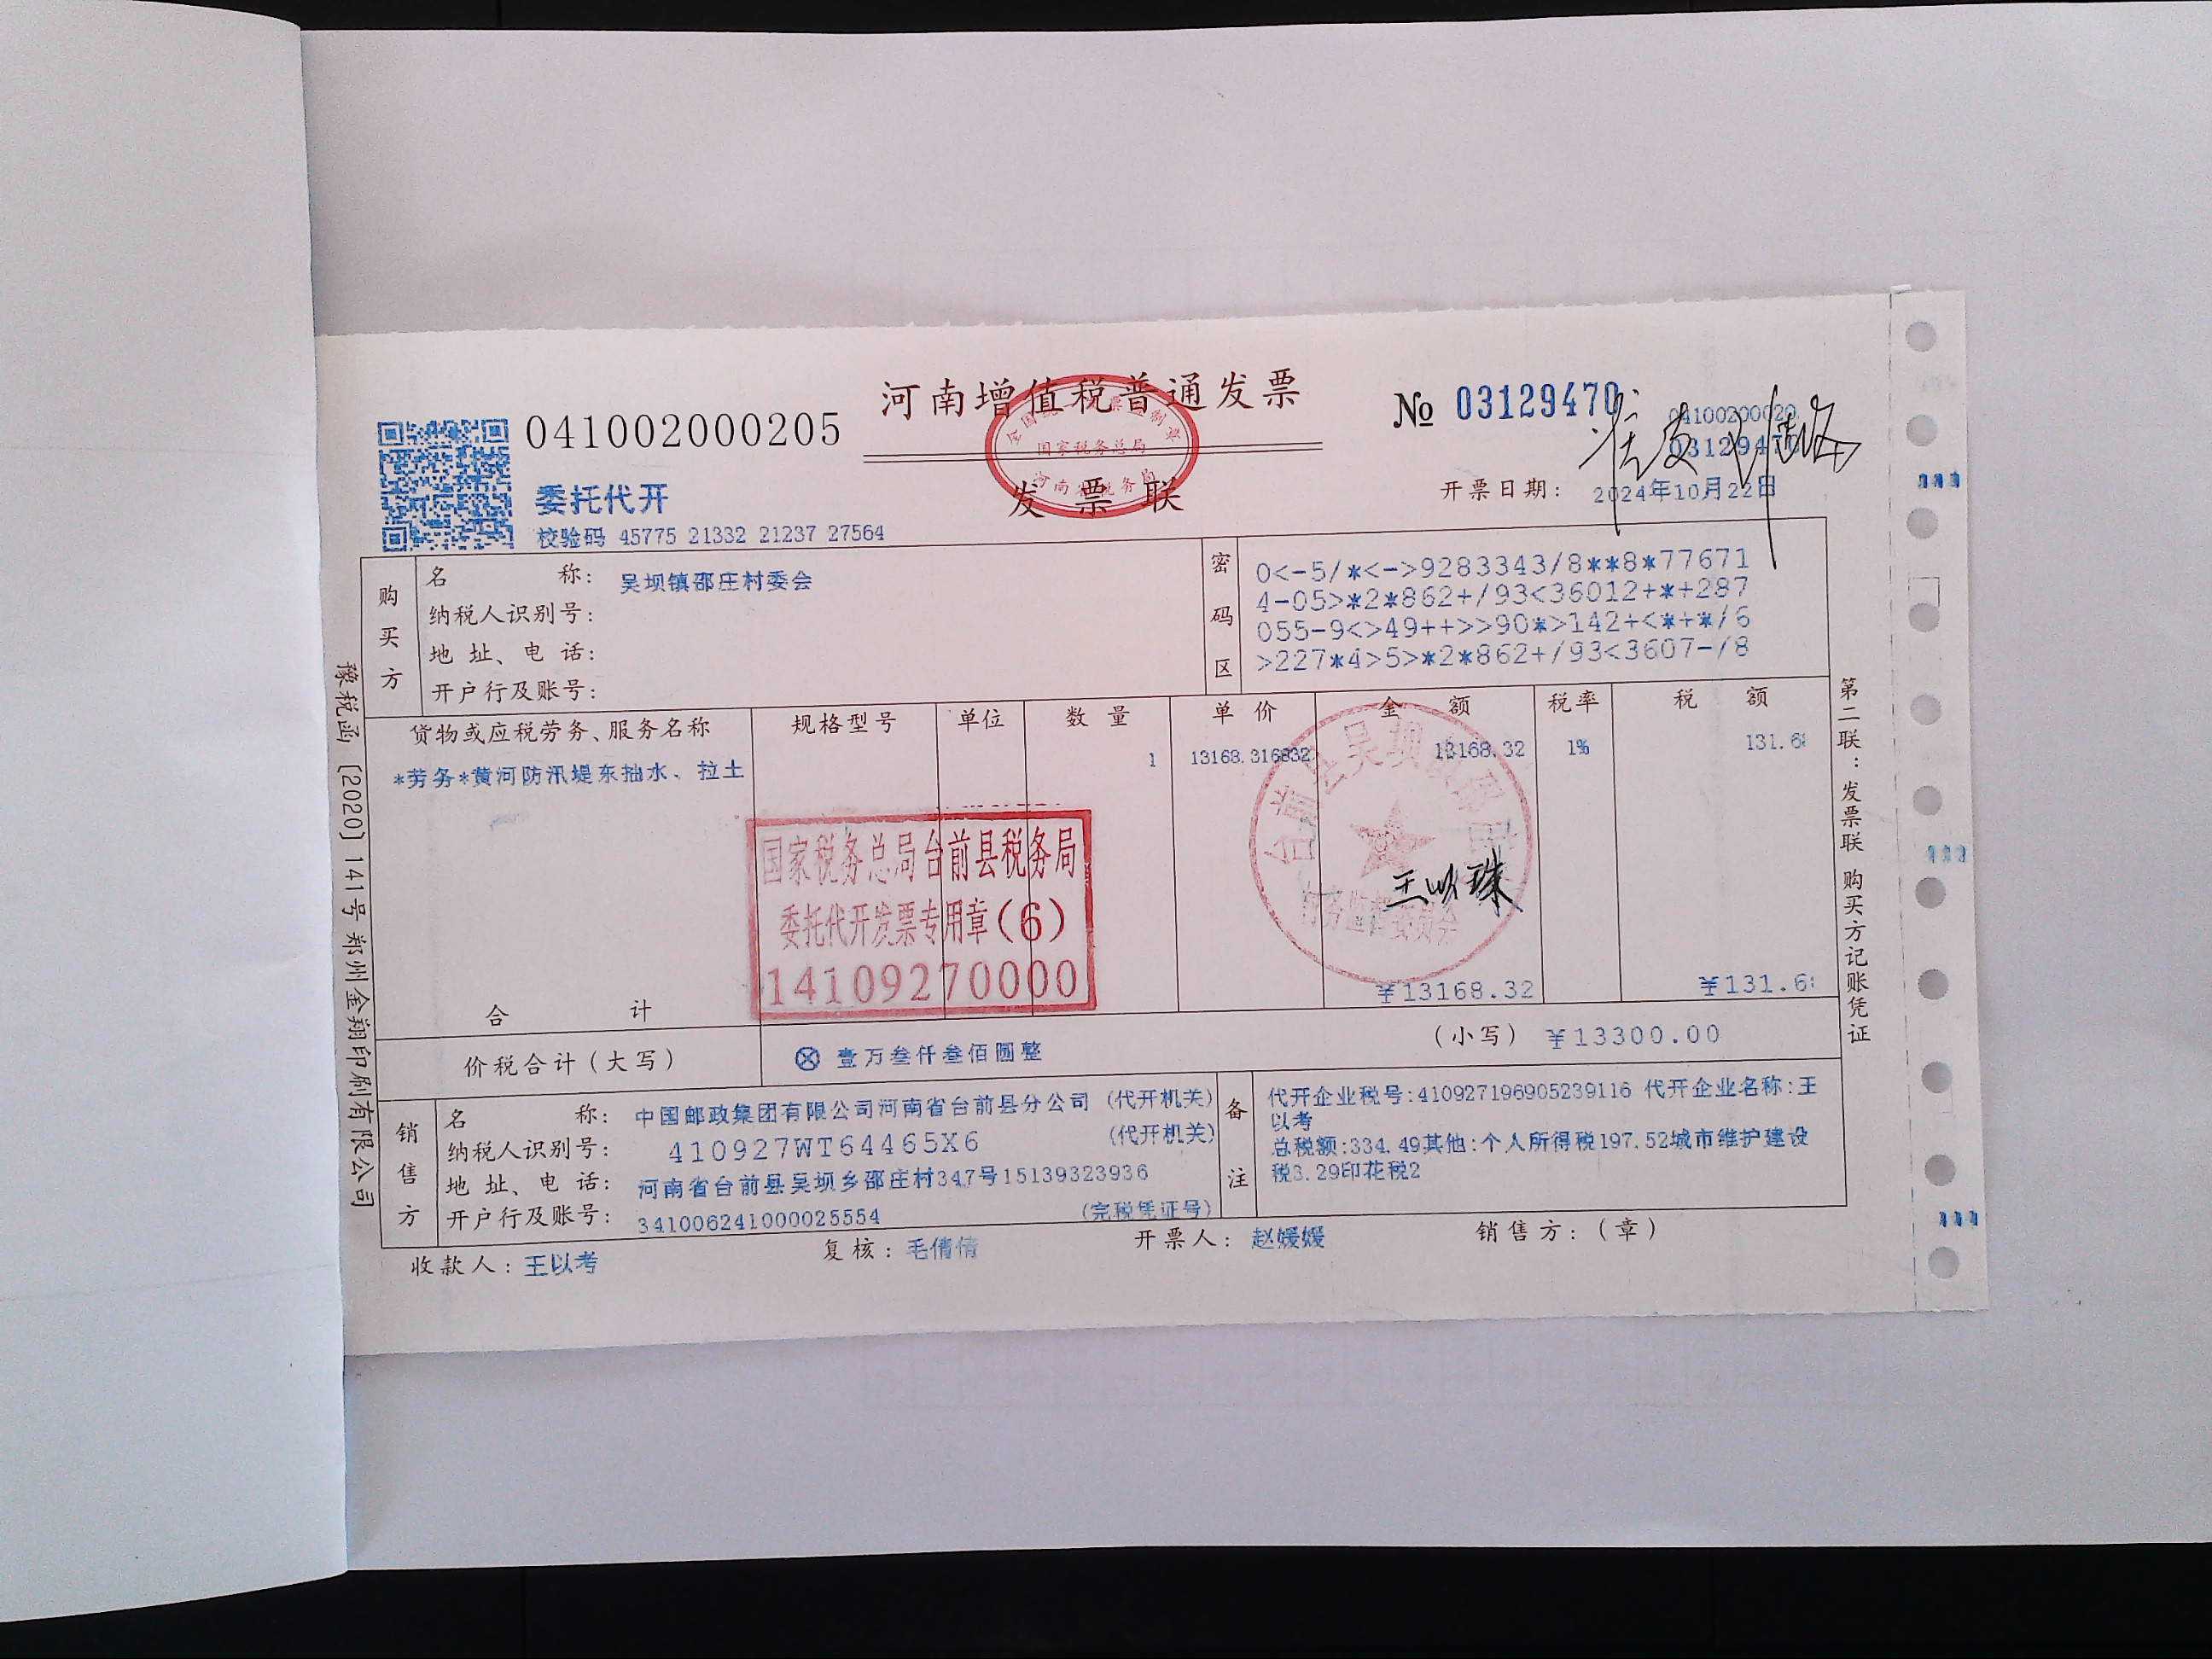 河南增值税普通发票
发票联
041002000205
委托代开
校验码 45775 21332 21237 27564
№ 03129470
开票日期: 2024年10月22日
全国
国家税务总局
河南省税务局
购买方
名称: 吴坝镇邵庄村委会
纳税人识别号:
地址、电话:
开户行及账号:
密码区
0<-5/*<->9283343/8**8*77671
4-05>*2*862+/93<36012+*+287
055-9<>49++>>90*>142+<*+*/6
>227*4>5>*2*862+/93<3607-/8
货物或应税劳务、服务名称 规格型号 单位 数量 单价 金额 税率 税额
*劳务*黄河防汛堤东抽水、拉土 1 13168.316832 13168.32 1% 131.68
国家税务总局台前县税务局
委托代开发票专用章(6)
14109270000
台前县吴坝
村务监督委员会
王以珠
合计 ¥13168.32 ¥131.68
价税合计(大写) ⊗ 壹万叁仟叁佰圆整 (小写) ¥13300.00
销售方
名称: 中国邮政集团有限公司河南省台前县分公司 (代开机关)
纳税人识别号: 410927WT64465X6 (代开机关)
地址、电话: 河南省台前县吴坝乡邵庄村347号15139323936
开户行及账号: 341006241000025554 (完税凭证号)
备注
代开企业税号:410927196905239116 代开企业名称:王
以考
总税额:334.49其他:个人所得税197.52城市维护建设
税3.29印花税2
收款人: 王以考 复核: 毛倩倩 开票人: 赵媛媛 销售方: (章)
第二联: 发票联 购买方记账凭证
豫税函[2020]141号郑州金翔印刷有限公司